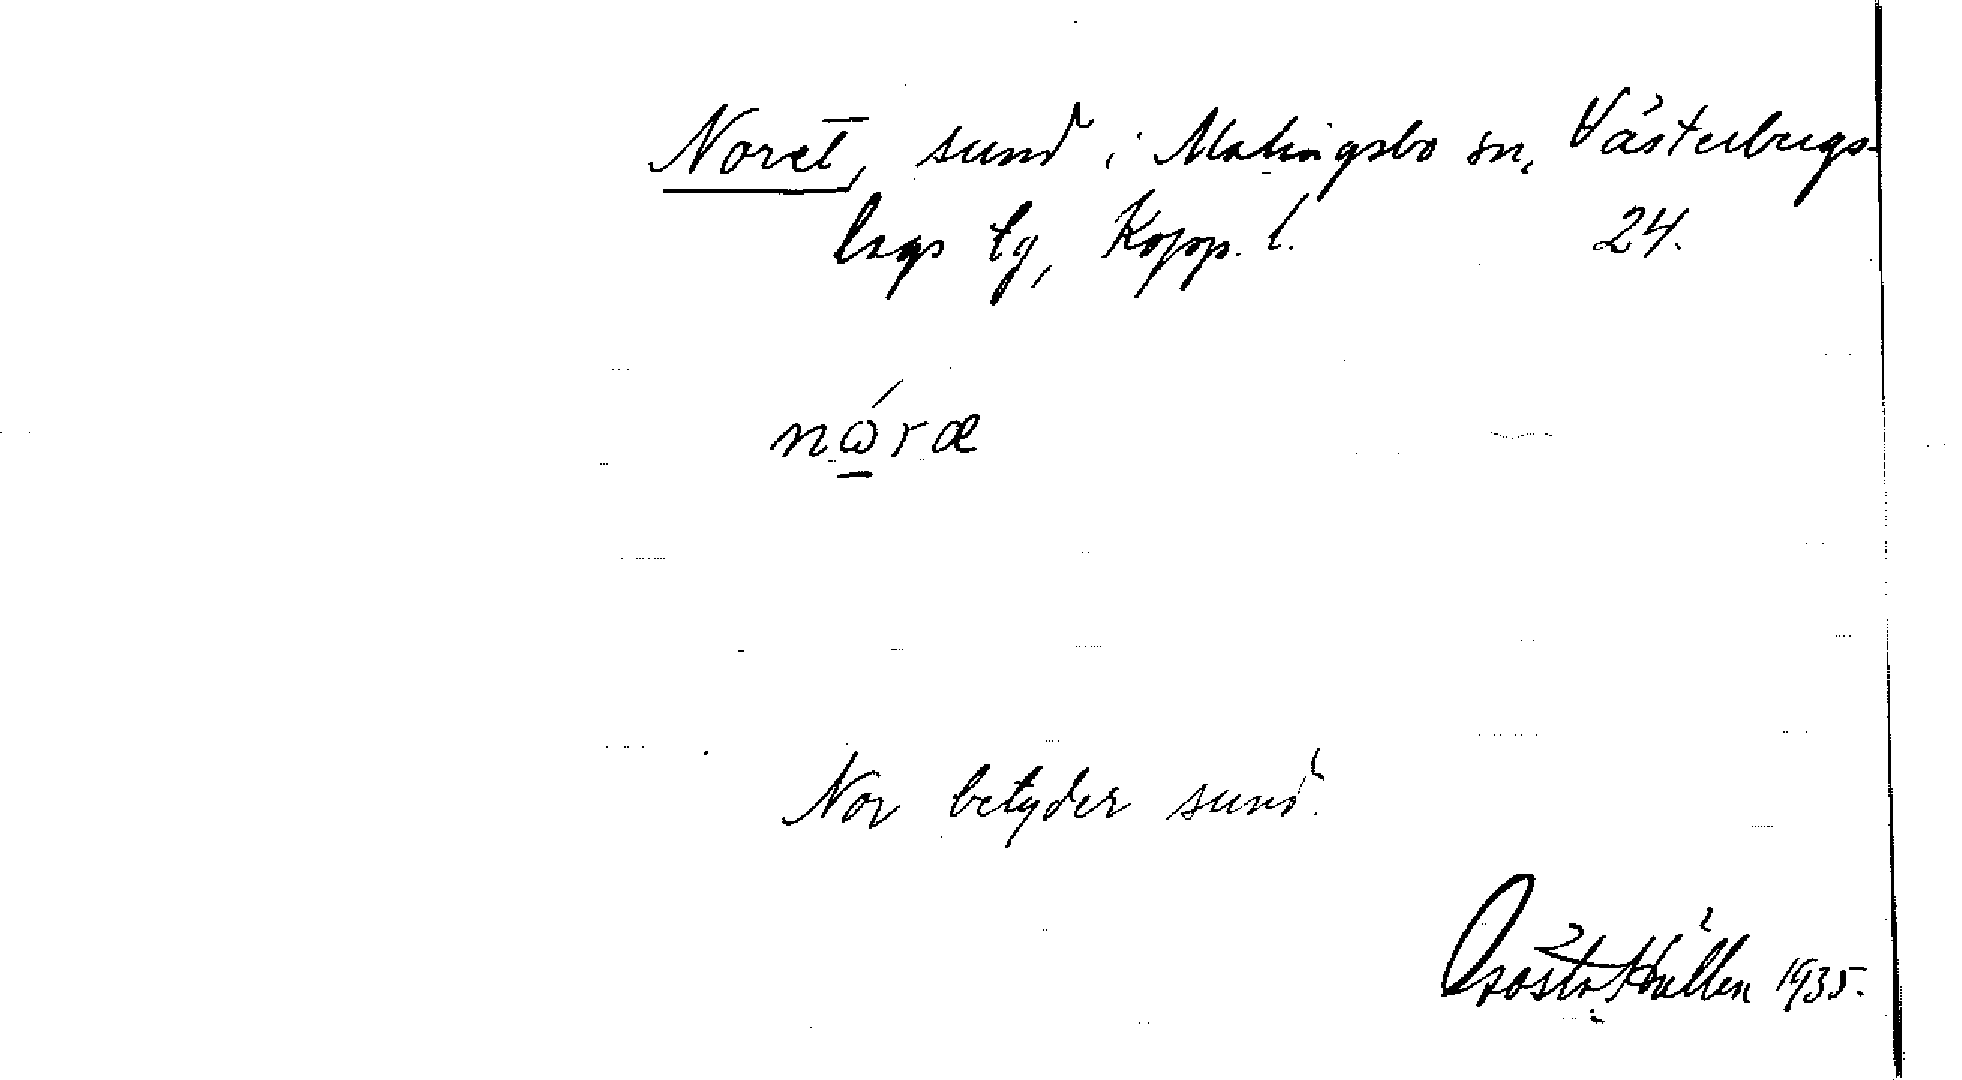 Noret, sund i Malingsbo sn, Västerbergs-
lags tg, Kopp. l. 24.
nώ̲ræ
Nor betyder sund.
Gösta Källen 1935.